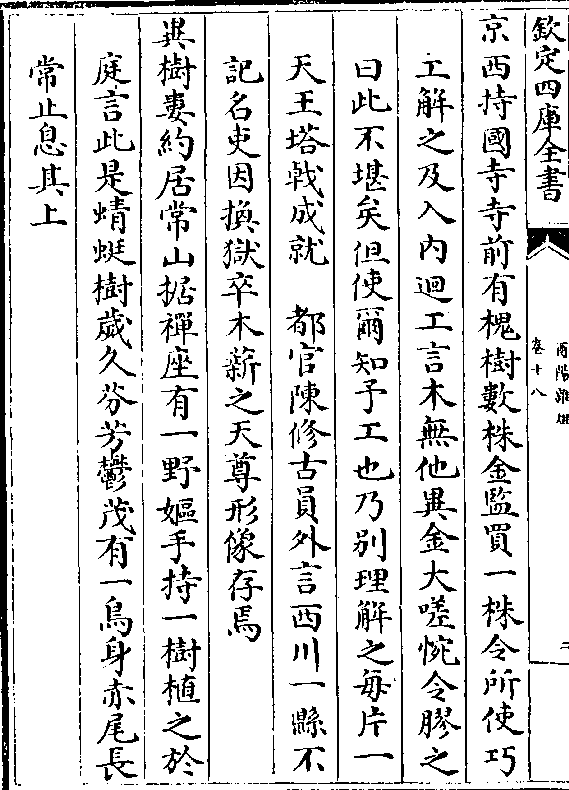 欽定四庫全書
酉陽雜俎
卷十八
二
京西持國寺寺前有槐樹數株金監買一株令所使巧
工解之及入内迴工言木無他異金大嗟惋令膠之
曰此不堪矣但使爾知予工也乃别理解之每片一
天王塔戟成就　都官陳修古員外言西川一縣不
記名吏因換獄卒木薪之天尊形像存焉
異樹婁約居常山据禪座有一野嫗手持一樹植之於
庭言此是蜻蜓樹歲久芬芳鬱茂有一鳥身赤尾長
常止息其上